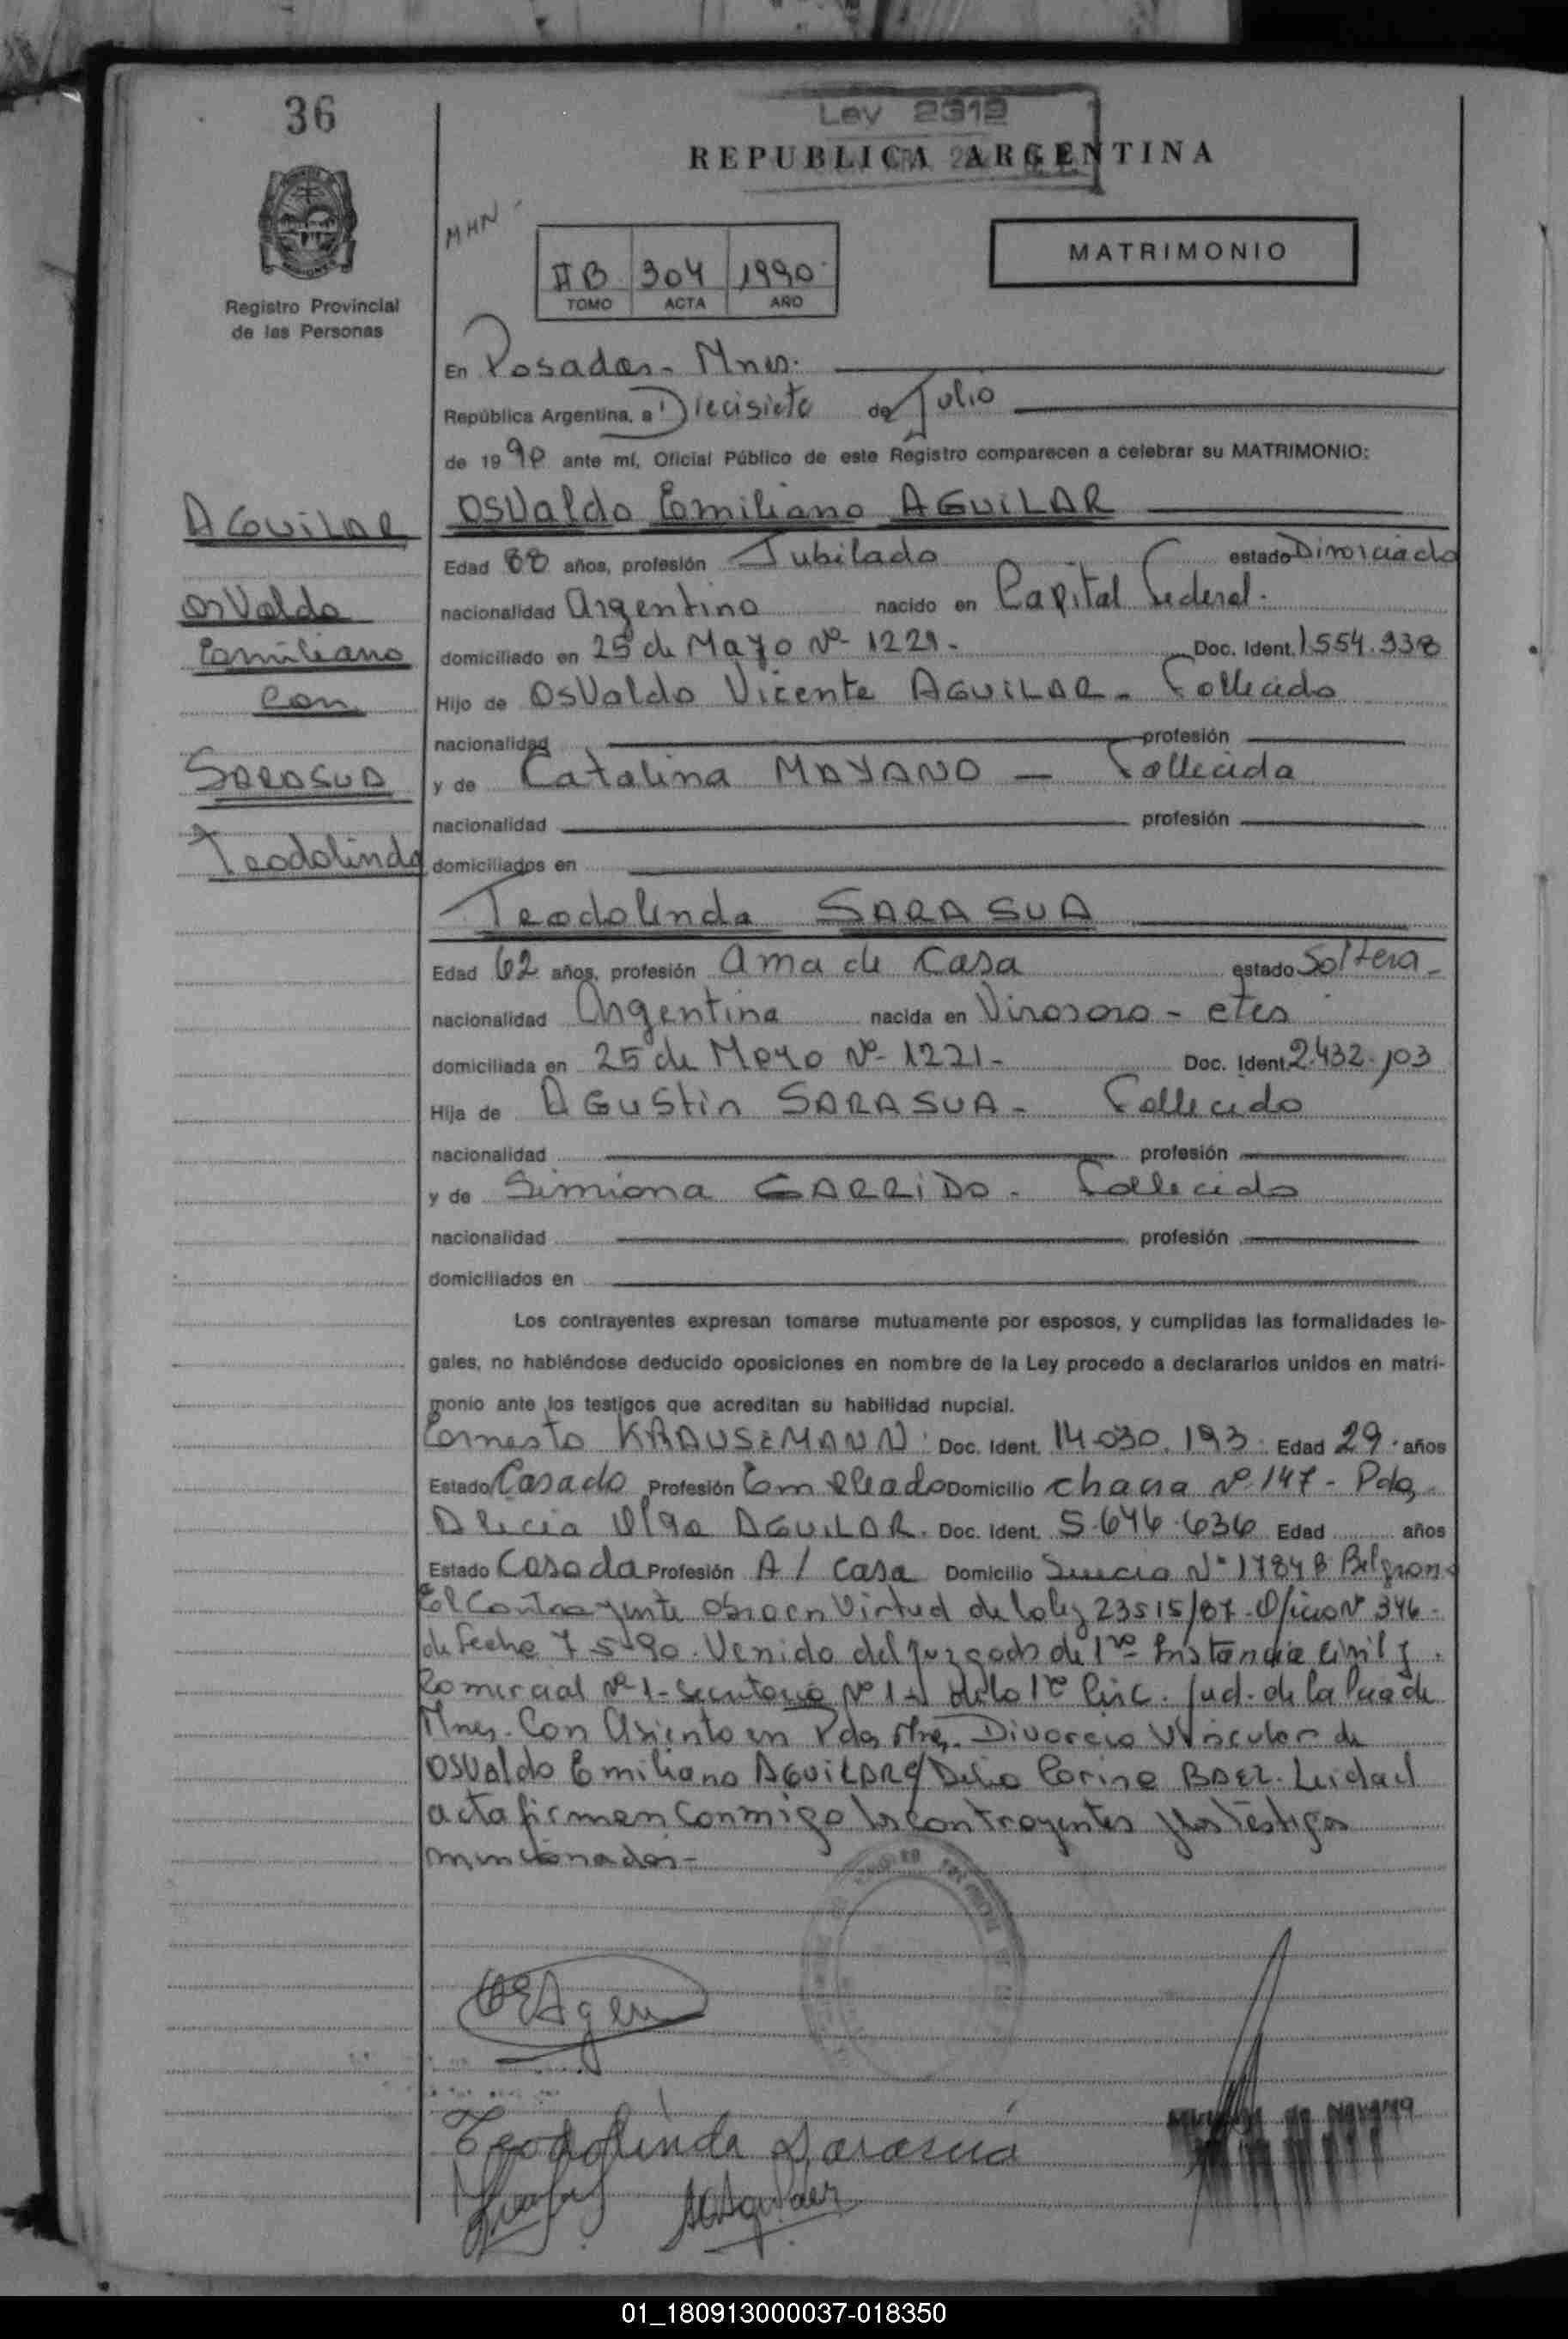 36
Ley 2312
REPUBLICA ARGENTINA
MHN -
II B 304 1990
TOMO ACTA AÑO
MATRIMONIO
Registro Provincial
de las Personas
En Posadas - Mnes.
República Argentina, a Diecisiete de Julio
de 1990 ante mí, Oficial Público de este Registro comparecen a celebrar su MATRIMONIO:
AGUILAR
Osvaldo
Emiliano
con
SARASUA
Teodolinda
Osvaldo Emiliano AGUILAR
Edad 88 años, profesión Jubilado estado Divorciado
nacionalidad Argentino nacido en Capital Federal.
domiciliado en 25 de Mayo Nº 1221 - Doc. Ident. 1.554.938
Hijo de Osvaldo Vicente AGUILAR - Fallecido
nacionalidad profesión
y de Catalina MAYANO - Fallecida
nacionalidad profesión
domiciliados en
Teodolinda SARASUA
Edad 62 años, profesión Ama de Casa estado Soltera -
nacionalidad Argentina nacida en Virasoro - ctes
domiciliada en 25 de Mayo Nº 1221 - Doc. Ident. 2.432.103
Hija de AGUStin SARASUA - Fallecido
nacionalidad profesión
y de Simiona GARRIDO - Fallecida
nacionalidad profesión
domiciliados en
Los contrayentes expresan tomarse mutuamente por esposos, y cumplidas las formalidades le-
gales, no habiéndose deducido oposiciones en nombre de la Ley procedo a declararlos unidos en matri-
monio ante los testigos que acreditan su habilidad nupcial.
Ernesto KRAUSEMANN. Doc. Ident. 14.030.193. Edad 29. años
Estado Casado Profesión Empleado Domicilio chacra Nº 147 - Pdas
Alicia Olga AGUILAR. Doc. Ident. 5.646.636 Edad años
Estado Casada Profesión A/ Casa Domicilio Suecia Nº 1784 B. Belgrano
El Contrayente obra en Virtud de la ley 23515/87. Oficio Nº 346 -
de fecha 7 5-90. Venido del Juzgado de 1ra Instancia Civil y
Comercial Nº 1 - Secretaria Nº 1 - de la 1ra Circ. Jud. de la Pcia de
Mnes. Con Asiento en Pdas Mnes. Divorcio Vincular de
Osvaldo Emiliano AGUILAR c/ Delia Corina BAEZ. Leida el
acta firman conmigo los contrayentes y los testigos
mencionados -
Teodolinda Sarasua
01_180913000037-018350